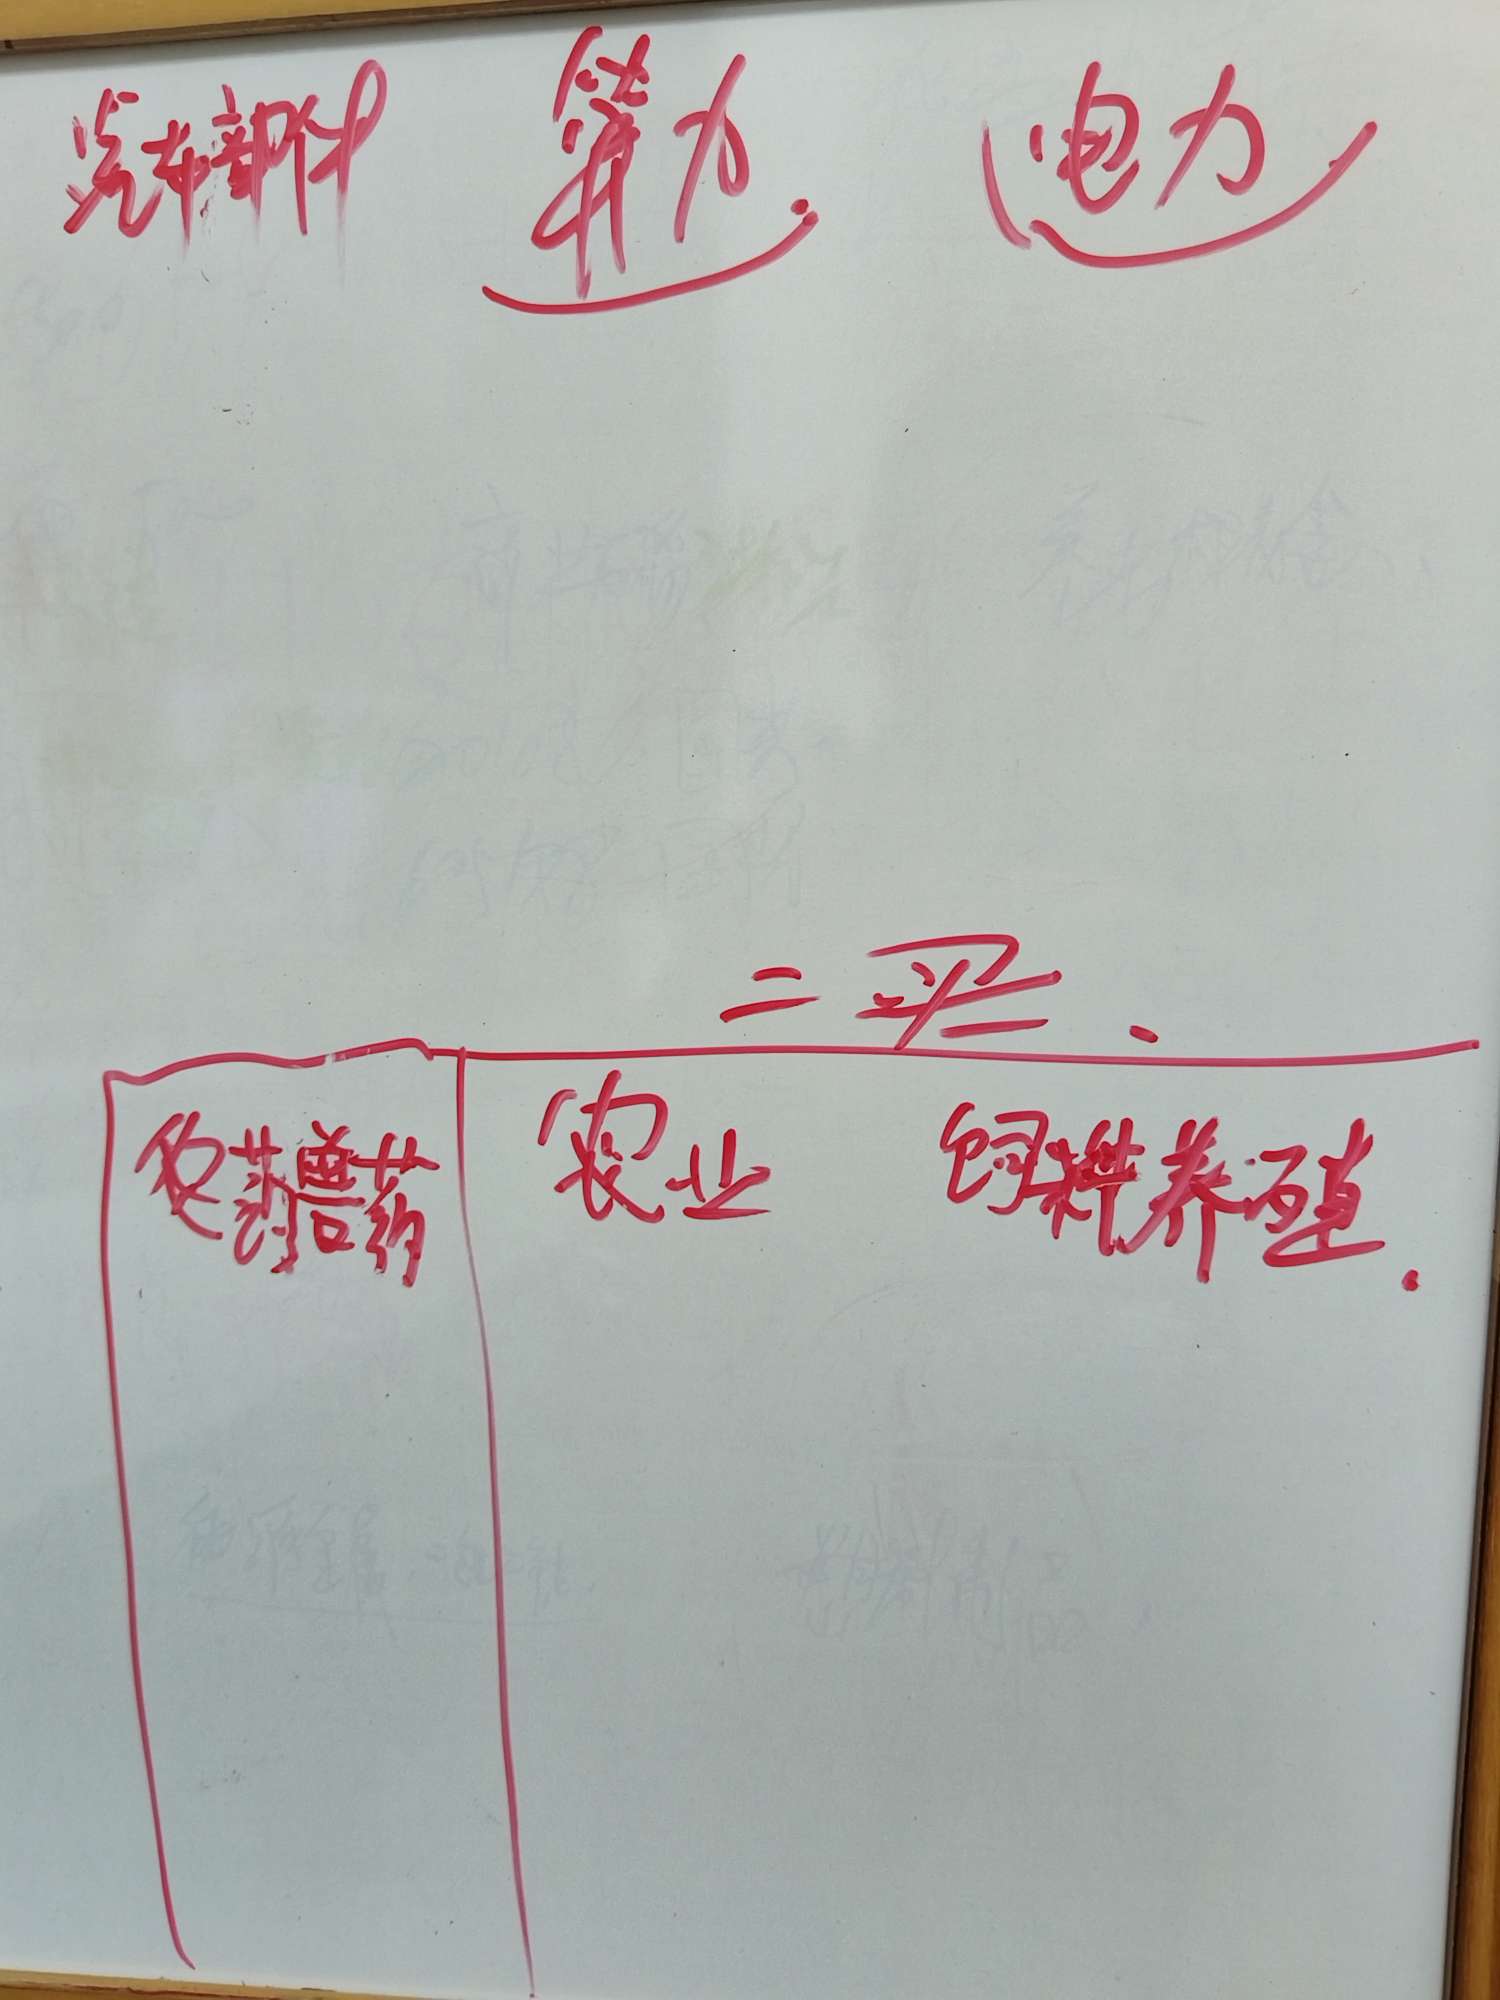 汽车部件 算力. 电力
二买.
农药兽药 农业 饲料养殖.